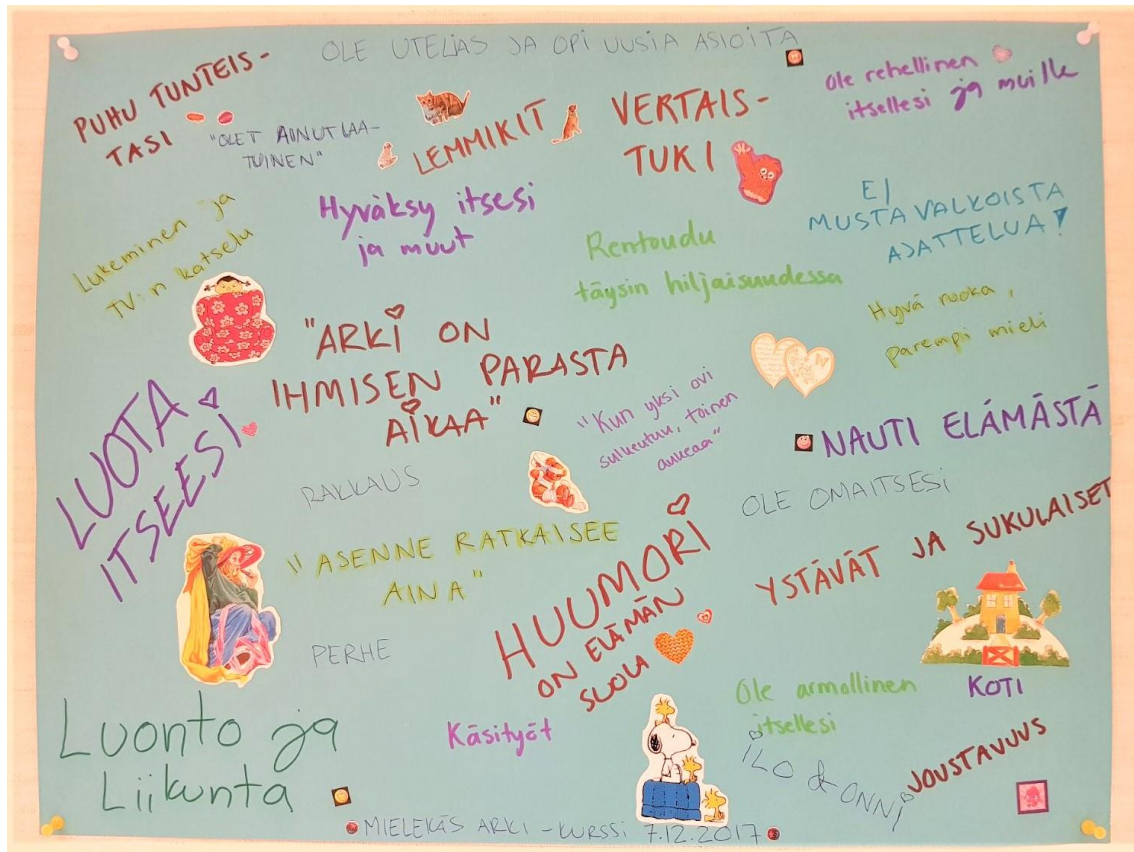 OLE UTELIAS JA OPI UUSIA ASIOITA
PUHU TUNTEIS-
TASI
"OLET AINUTLAA-
TUINEN"
LEMMIKIT
VERTAIS-
TUKI
Ole rehellinen
itsellesi ja muille
Lukeminen ja
TV:n katselu
Hyväksy itsesi
ja muut
Rentoudu
täysin hiljaisuudessa
EI
MUSTAVALKOISTA
AJATTELUA!
Hyvä ruoka,
parempi mieli
"ARKI ON
IHMISEN PARASTA
AIKAA"
LUOTA
ITSEESI
"Kun yksi ovi
sulkeutuu, toinen
aukeaa"
NAUTI ELÄMÄSTÄ
RAKKAUS
OLE OMA ITSESI
"ASENNE RATKAISEE
AINA"
HUUMORI
ON ELÄMÄN
SUOLA
YSTÄVÄT JA SUKULAISET
PERHE
Luonto ja
Liikunta
Käsityöt
Ole armollinen
itsellesi
KOTI
ILO & ONNI
JOUSTAVUUS
MIELEKÄS ARKI -KURSSI 7.12.2017